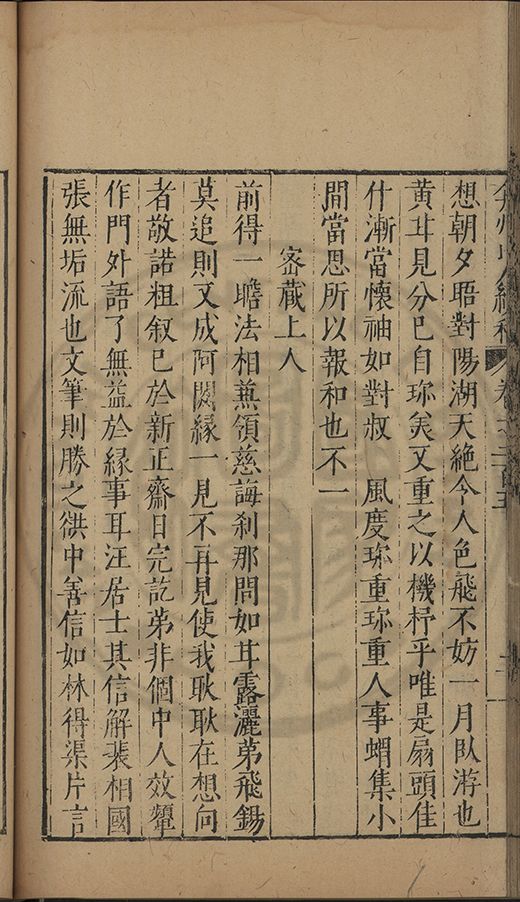 弇州山人續稿 卷之二百五
想朝夕晤對陽湖天絶今人色飛不妨一月臥游也
黄甘見分已自珎矣又重之以機杼乎唯是扇頭佳
什漸當懷袖如對叔 風度珎重珎重人事蝟集小
間當思所以報和也不一
宻蔵上人
前得一瞻法相兼領慈誨刹那間如甘露灑第飛錫
莫追則又成阿閦縁一見不再見使我耿耿在想向
者敬諾粗叙已於新正齋日完訖第非個中人效顰
作門外語了無益於縁事耳汪居士其信解裴相國
張無垢流也文筆則勝之徃中善信如林得渠片言